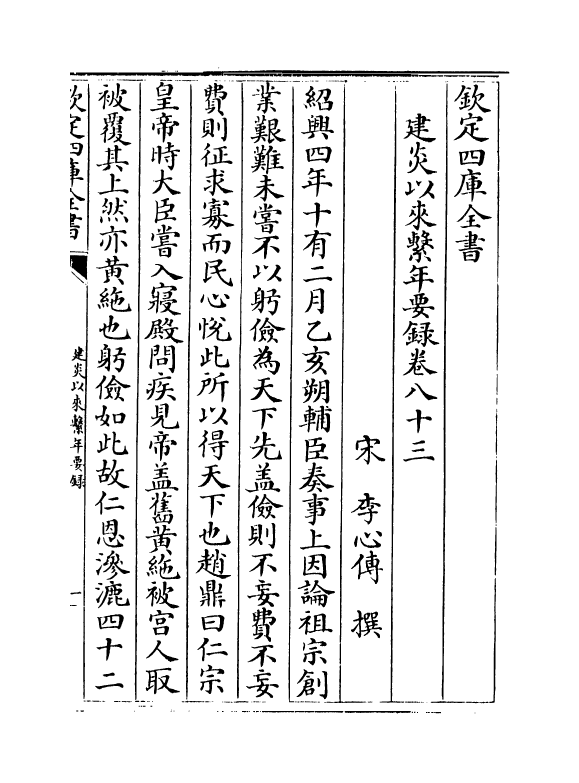 欽定四庫全書
建炎以來繫年要録卷八十三
宋　李心傳　撰
紹興四年十有二月乙亥朔輔臣奏事上因論祖宗創
業艱難未嘗不以躬儉為天下先盖儉則不妄費不妄
費則征求寡而民心恱此所以得天下也趙鼎曰仁宗
皇帝時大臣嘗入寝殿問疾見帝盖舊黄絁被宫人取
被覆其上然亦黄絁也躬儉如此故仁恩滲漉四十二
欽定四庫全書
建炎以來繫年要録
一